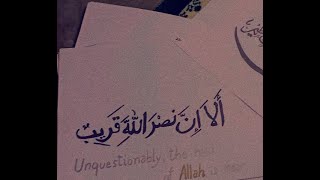 أَلَا إِنَّ نَصْرَ اللَّهِ قَرِيبٌ
Unquestionably, the
of Allah is near